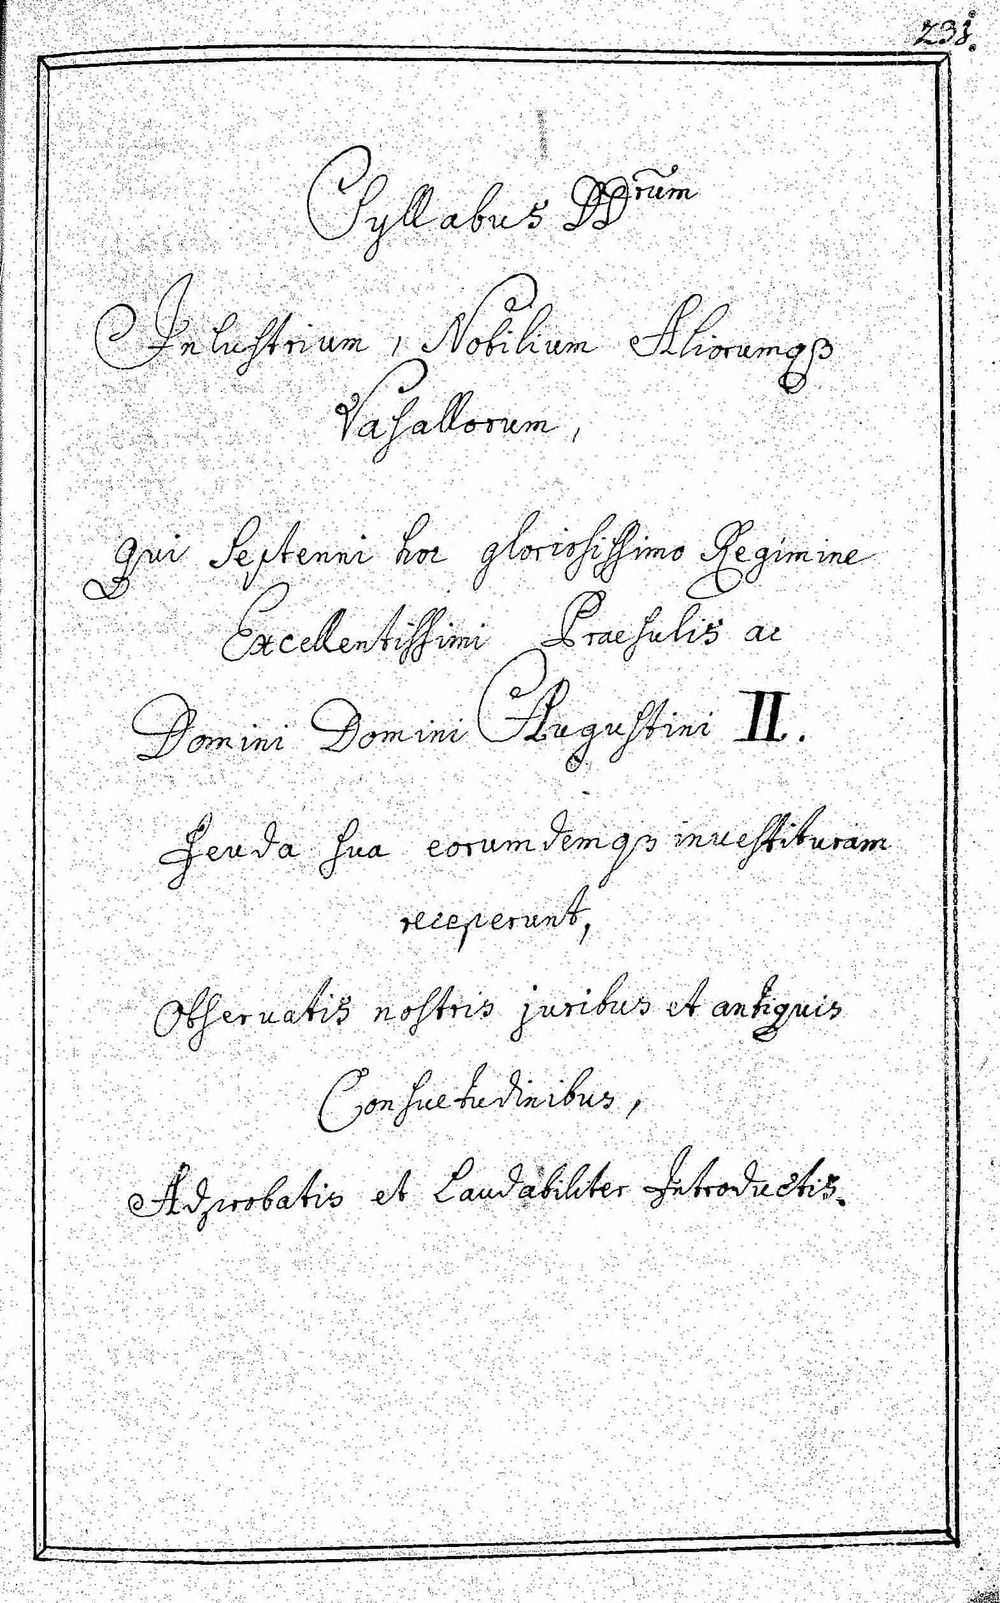 231.
Syllabus DD rum
Inlustrium, Nobilium Aliorumqȝ
Vasallorum,
qui Septenni hoc gloriosissimo Regimine
Excellentissimi Praesulis ac
Domini Domini Augustini II.
Feuda sua eorumdemqȝ inuestituram
receperunt,
Obseruatis nostris juribus et antiquis
Consuetudinibus,
Adprobatis et Laudabiliter Introductis.